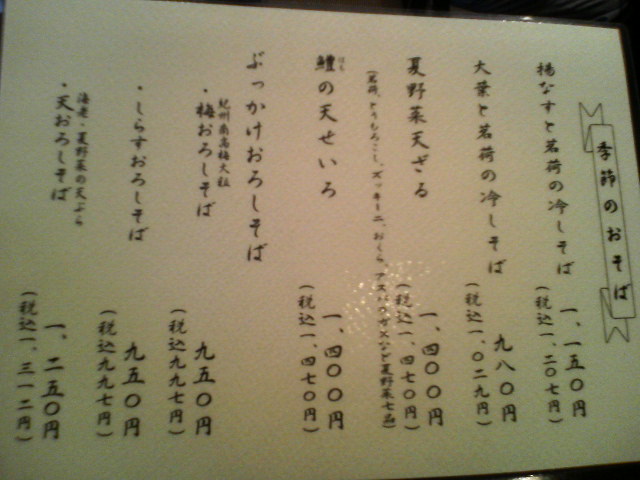 季節のおそば
揚なすと茗荷の冷しそば
一、一五〇円
(税込一、二〇七円)
大葉と茗荷の冷しそば
九八〇円
(税込一、〇二九円)
夏野菜天ざる
一、四〇〇円
(税込一、四七〇円)
(茗荷、とうもろこし、ズッキーニ、おくら、アスパラガスなど夏野菜七品)
鱧の天せいろ
はも
一、四〇〇円
(税込一、四七〇円)
ぶっかけおろしそば
紀州南高梅大粒
・梅おろしそば
九五〇円
(税込九九七円)
・しらすおろしそば
九五〇円
(税込九九七円)
海老・夏野菜の天ぷら
・天おろしそば
一、二五〇円
(税込一、三一二円)